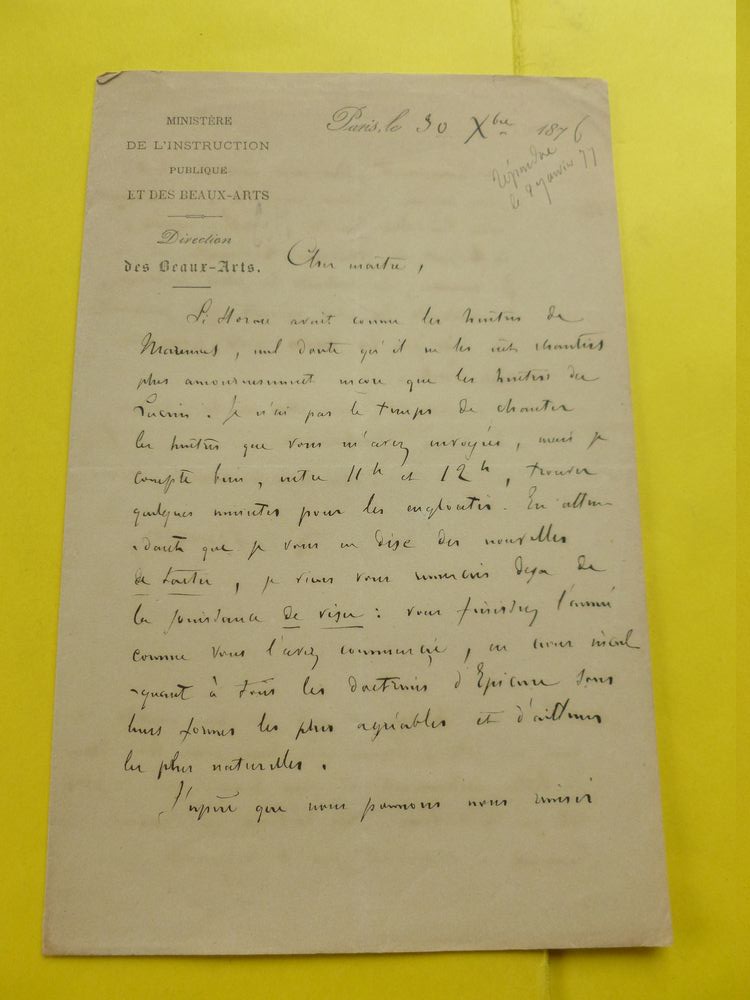 MINISTÈRE
DE L'INSTRUCTION
PUBLIQUE
ET DES BEAUX-ARTS
Direction
des Beaux-Arts.
Paris, le 30 Xbre 1876
répondre
le 9 janvier 77
Cher maître,
Si Horace avait connu les huîtres de
Marennes, nul doute qu'il ne les eût chantées
plus amoureusement encore que les huîtres du
Lucrin. Je n'ai pas le temps de chanter
les huîtres que vous m'avez envoyées, mais je
compte bien, entre 11h et 12h, trouver
quelques minutes pour les engloutir. En atten-
-dant que je vous en dise des nouvelles
de gustu, je viens vous remercier déjà de
la jouissance de visu : vous finissez l'année
comme vous l'avez commencée, en nous
-quant à tous les doctrines d'Epicure sous
leurs formes les plus agréables et d'ailleurs
les plus naturelles.
J'espère que nous pourrons nous réunir